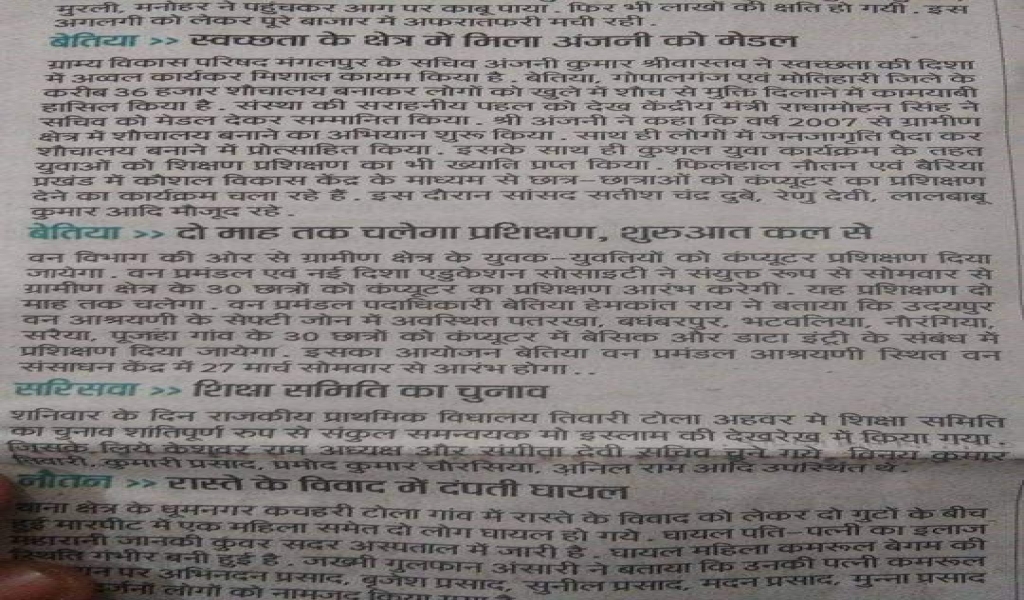 मुरली, मनोहर ने पहुंचकर आग पर काबू पाया . फिर भी लाखों की क्षति हो गयी . इस
अगलगी को लेकर पूरे बाजार में अफरातफरी मची रही .
बेतिया >> स्वच्छता के क्षेत्र में मिला अंजनी को मेडल
ग्राम्य विकास परिषद मंगलपुर के सचिव अंजनी कुमार श्रीवास्तव ने स्वच्छता की दिशा
में अव्वल कार्यकर मिशाल कायम किया है . बेतिया, गोपालगंज एवं मोतिहारी जिले के
करीब 36 हजार शौचालय बनाकर लोगों को खुले में शौच से मुक्ति दिलाने में कामयाबी
हासिल किया है . संस्था की सराहनीय पहल को देख केंद्रीय मंत्री राधामोहन सिंह ने
सचिव को मेडल देकर सम्मानित किया . श्री अंजनी ने कहा कि वर्ष 2007 से ग्रामीण
क्षेत्र में शौचालय बनाने का अभियान शुरू किया . साथ ही लोगों में जनजागृति पैदा कर
शौचालय बनाने में प्रोत्साहित किया . इसके साथ ही कुशल युवा कार्यक्रम के तहत
युवाओं को शिक्षण प्रशिक्षण का भी ख्याति प्रप्त किया . फिलहाल नौतन एवं बैरिया
प्रखंड में कौशल विकास केंद्र के माध्यम से छात्र- छात्राओं को कंप्यूटर का प्रशिक्षण
देने का कार्यक्रम चला रहे हैं . इस दौरान सांसद सतीश चंद्र दुबे, रेणु देवी, लालबाबू
कुमार आदि मौजूद रहे .
बेतिया >> दो माह तक चलेगा प्रशिक्षण, शुरुआत कल से
वन विभाग की ओर से ग्रामीण क्षेत्र के युवक-युवतियों को कंप्यूटर प्रशिक्षण दिया
जायेगा . वन प्रमंडल एवं नई दिशा एडुकेशन सोसाइटी ने संयुक्त रूप से सोमवार से
ग्रामीण क्षेत्र के 30 छात्रों को कंप्यूटर का प्रशिक्षण आरंभ करेगी . यह प्रशिक्षण दो
माह तक चलेगा . वन प्रमंडल पदाधिकारी बेतिया हेमकांत राय ने बताया कि उदयपुर
वन आश्रयणी के सेफ्टी जोन में अवस्थित पतरखा, बघंबरपुर, भटवलिया, नौरंगिया,
सरैया, पूजहा गांव के 30 छात्रों को कंप्यूटर में बेसिक और डाटा इंट्री के संबंध में
प्रशिक्षण दिया जायेगा . इसका आयोजन बेतिया वन प्रमंडल आश्रयणी स्थित वन
संसाधन केंद्र में 27 मार्च सोमवार से आरंभ होगा . .
सरिसवा >> शिक्षा समिति का चुनाव
शनिवार के दिन राजकीय प्राथमिक विघालय तिवारी टोला अहवर मे शिक्षा समिति
का चुनाव शांतिपूर्ण रुप से संकुल समन्वयक मो इस्लाम की देखरेख में किया गया .
जिसके लिये केशवर राम अध्यक्ष और संगीता देवी सचिव चुने गये . विनय कुमार
कुमारी प्रसाद, प्रमोद कुमार चौरसिया, अनिल राम आदि उपस्थित थे .
नौतन >> रास्ते के विवाद में दंपती घायल
थाना क्षेत्र के धूमनगर कचहरी टोला गांव में रास्ते के विवाद को लेकर दो गुटों के बीच
हुई मारपीट में एक महिला समेत दो लोग घायल हो गये . घायल पति-पत्नी का इलाज
महारानी जानकी कुंवर सदर अस्पताल में जारी है . घायल महिला कमरूल बेगम की
स्थिति गंभीर बनी हुई है . जख्मी गुलफान अंसारी ने बताया कि उनकी पत्नी कमरूल
पर अभिनंदन प्रसाद, बृजेश प्रसाद, सुनील प्रसाद, मदन प्रसाद, मुन्ना प्रसाद
लोगों को नामजद किया गया